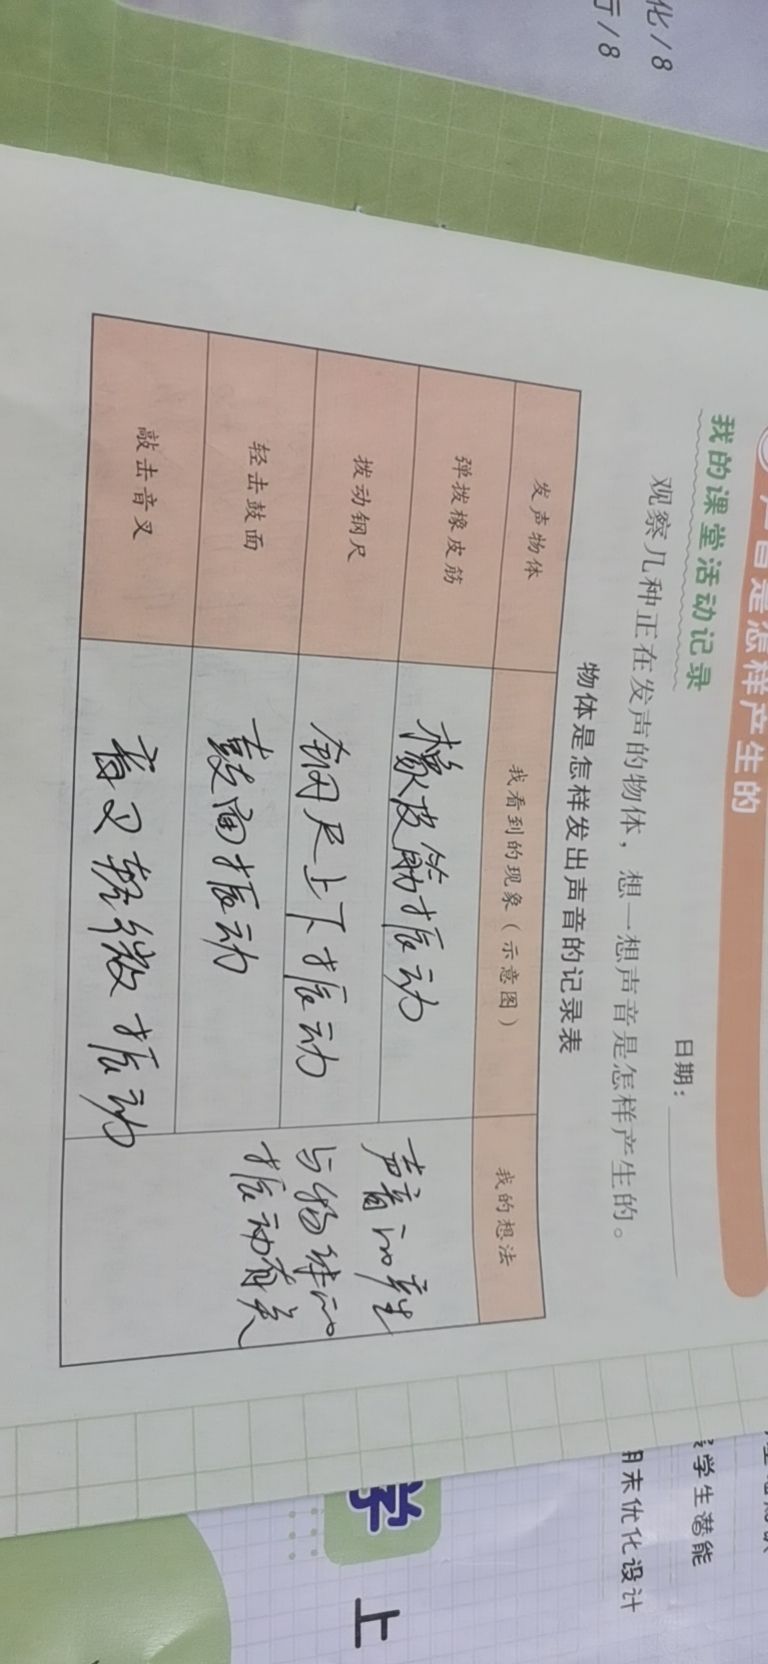 化/8
行/8
声音是怎样产生的
我的课堂活动记录
日期:
观察几种正在发声的物体，想一想声音是怎样产生的。
物体是怎样发出声音的记录表
发声物体 我看到的现象（示意图） 我的想法
弹拨橡皮筋 橡皮筋振动
拨动钢尺 钢尺上下振动
轻击鼓面 鼓面振动
敲击音叉 音叉轻微振动
声音的产生
与物体的
振动有关
学生潜能
期末优化设计
学
上